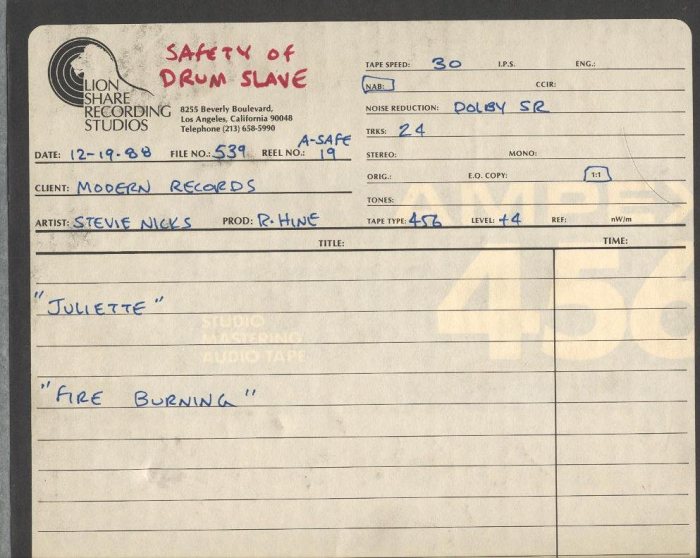 SAFETY OF
DRUM SLAVE
LION
SHARE
RECORDING
STUDIOS
8255 Beverly Boulevard,
Los Angeles, California 90048
Telephone (213) 658-5990
DATE: 12-19-88 FILE NO.: 539 REEL NO.: A-SAFE 19
CLIENT: MODERN RECORDS
ARTIST: STEVIE NICKS PROD: R. HINE
TAPE SPEED: 30 I.P.S. ENG.:
NAB: CCIR:
NOISE REDUCTION: DOLBY SR
TRKS: 24
STEREO: MONO:
ORIG.: E.Q. COPY: 1:1
TONES:
TAPE TYPE: 456 LEVEL: +4 REF: nW/m
TITLE: TIME:
"JULIETTE"
"FIRE BURNING"
AMPEX
456
STUDIO
MASTERING
AUDIO TAPE